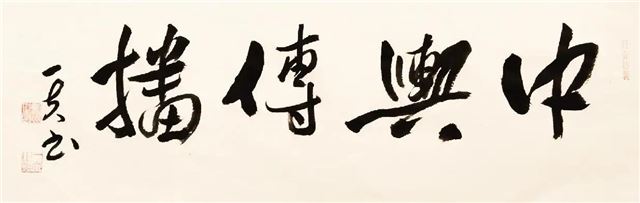 中興傳播